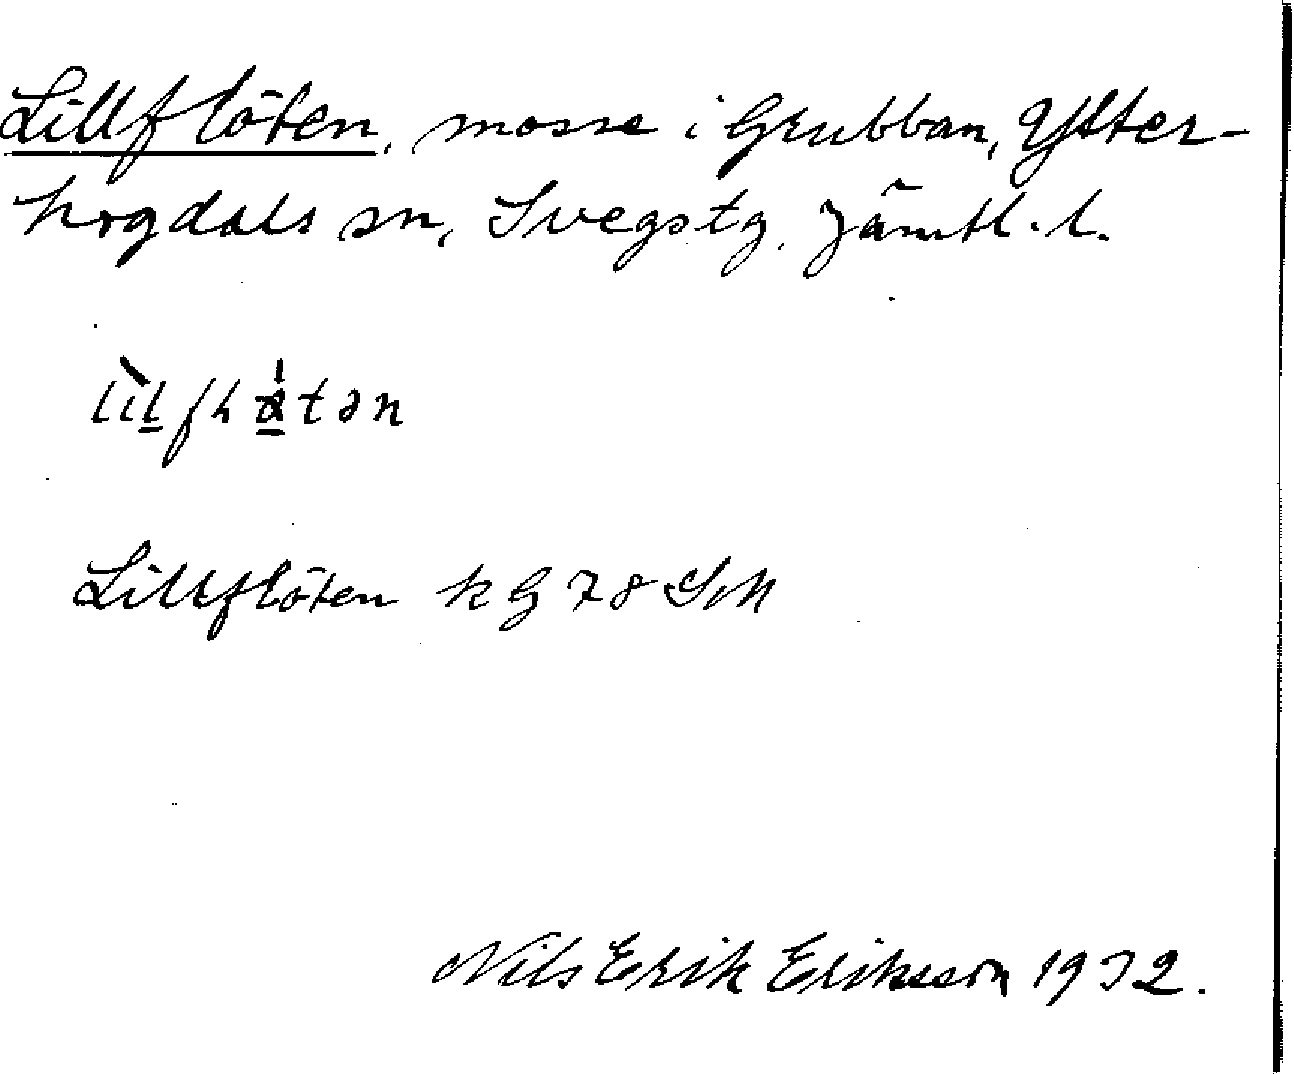 Lillflöten, mosse i Grubban, Ytter-
hogdals sn, Svegs tg, Jämtl. l.
Lillflöten kG 78 SM
Nils Erik Eriksson 1932.